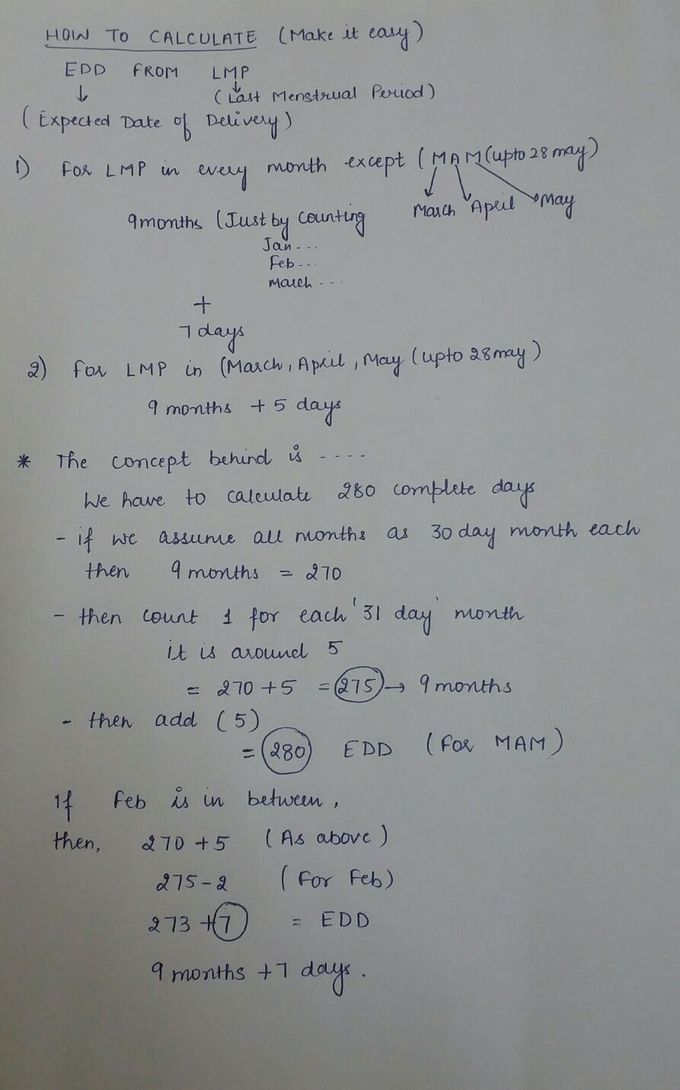 HOW TO CALCULATE (Make it easy)
EDD FROM LMP
↓ ↓
(Last Menstrual Period)
(Expected Date of Delivery)
1) For LMP in every month except (MAM (upto 28 may)
March April May
9 months (Just by counting
Jan ...
Feb ...
march ...
+
7 days
2) For LMP in (March, April, May (upto 28 may)
9 months + 5 days
* The concept behind is ----
We have to calculate 280 complete days
- if we assume all months as 30 day month each
then 9 months = 270
- then count 1 for each '31 day' month
it is around 5
= 270 + 5 = 275 → 9 months
- then add (5)
= 280 EDD (For MAM)
If Feb is in between,
then, 270 + 5 (As above)
275 - 2 (For Feb)
273 + 7 = EDD
9 months + 7 days.